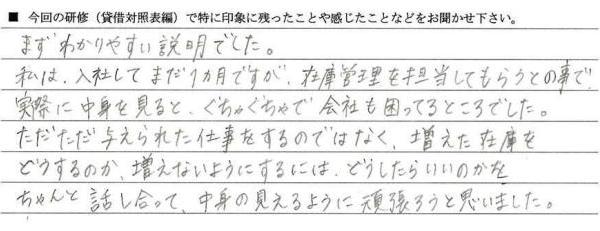 ■ 今回の研修（貸借対照表編）で特に印象に残ったことや感じたことなどをお聞かせ下さい。
まずわかりやすい説明でした。
私は、入社してまだ1カ月ですが、在庫管理を担当してもらうとの事で、
実際に中身を見ると、ぐちゃぐちゃで会社も困ってるところでした。
ただただ与えられた仕事をするのではなく、増えた在庫を
どうするのか、増えないようにするには、どうしたらいいのかを
ちゃんと話し合って、中身の見えるように頑張ろうと思いました。